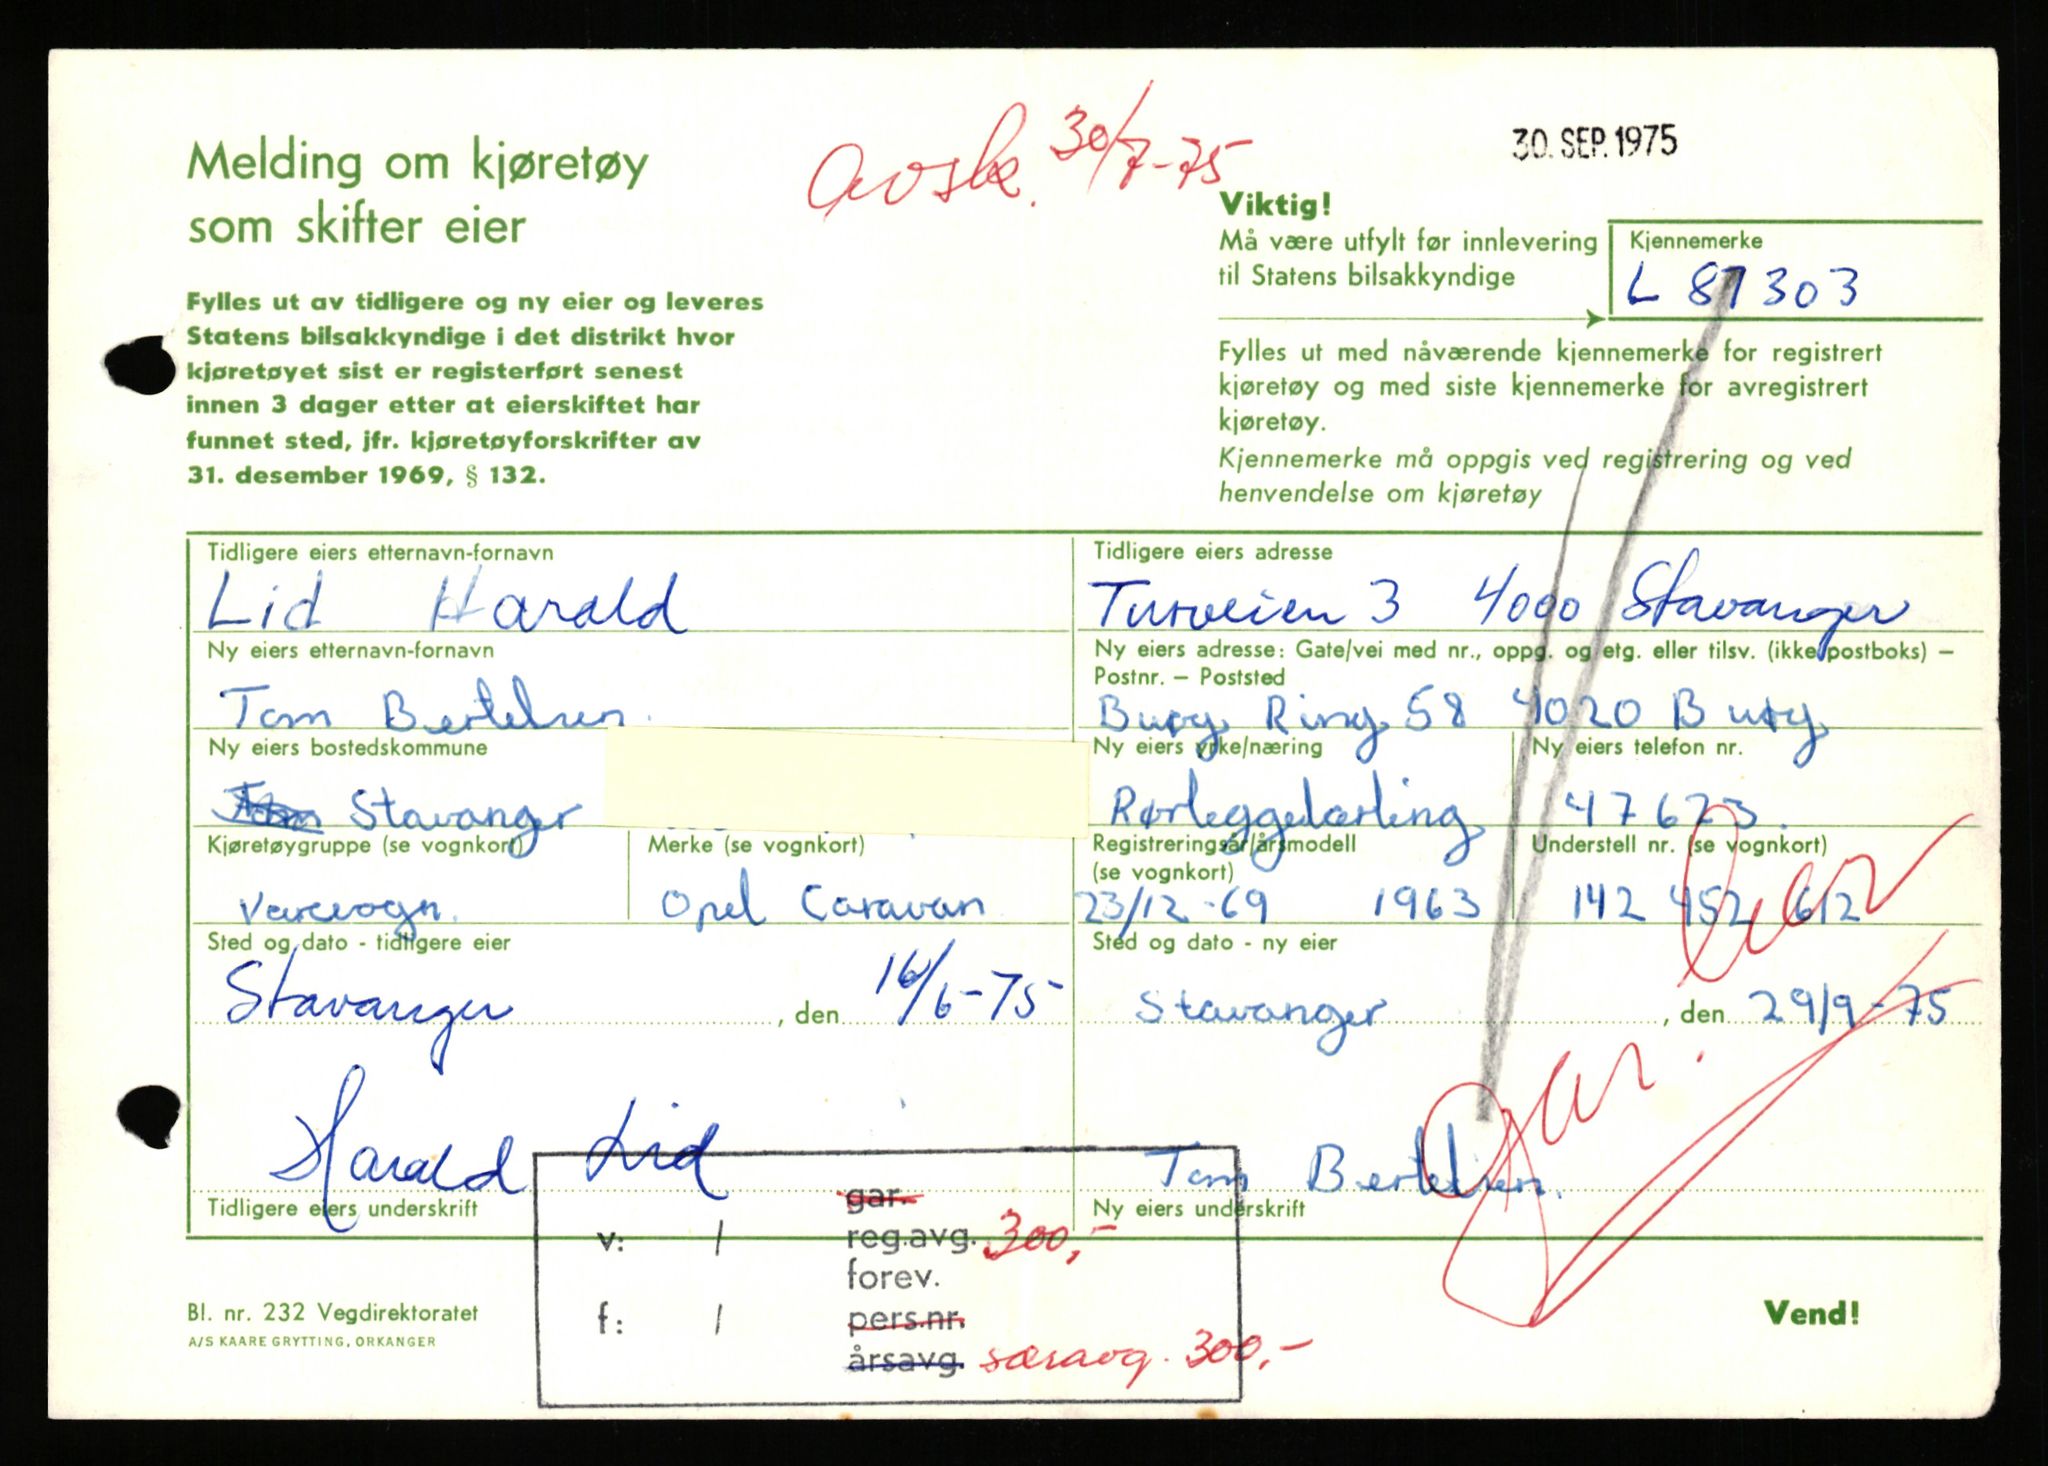 Melding om kjøretøy
som skifter eier
Avsk. 30/7-75
30. SEP. 1975
Fylles ut av tidligere og ny eier og leveres
Statens bilsakkyndige i det distrikt hvor
kjøretøyet sist er registerført senest
innen 3 dager etter at eierskiftet har
funnet sted, jfr. kjøretøyforskrifter av
31. desember 1969, § 132.
Viktig!
Må være utfylt før innlevering
til Statens bilsakkyndige
Kjennemerke
L 87303
Fylles ut med nåværende kjennemerke for registrert
kjøretøy og med siste kjennemerke for avregistrert
kjøretøy.
Kjennemerke må oppgis ved registrering og ved
henvendelse om kjøretøy
Tidligere eiers etternavn-fornavn
Lid Harald
Tidligere eiers adresse
Turveien 3 4000 Stavanger
Ny eiers etternavn-fornavn
Tom Bertelsen.
Ny eiers adresse: Gate/vei med nr., oppg. og etg. eller tilsv. (ikke postboks) –
Postnr. – Poststed
Burg Ring 58 4020 Burg
Ny eiers bostedskommune
Stavanger
Ny eiers yrke/næring
Rørleggelærling
Ny eiers telefon nr.
47623.
Kjøretøygruppe (se vognkort)
Varevogn.
Merke (se vognkort)
Opel Caravan
Registreringsår/årsmodell
(se vognkort)
23/12-69 1963
Understell nr. (se vognkort)
142 452 612
Sted og dato - tidligere eier
Stavanger, den 16/6-75
Sted og dato - ny eier
Stavanger, den 29/9-75
Harald Lid
Tidligere eiers underskrift
Tom Bertelsen.
Ny eiers underskrift
gar.
v: / reg.avg. 300,-
forev.
f: / pers.nr.
årsavg. særavg. 300,-
Bl. nr. 232 Vegdirektoratet
A/S KAARE GRYTTING, ORKANGER
Vend!